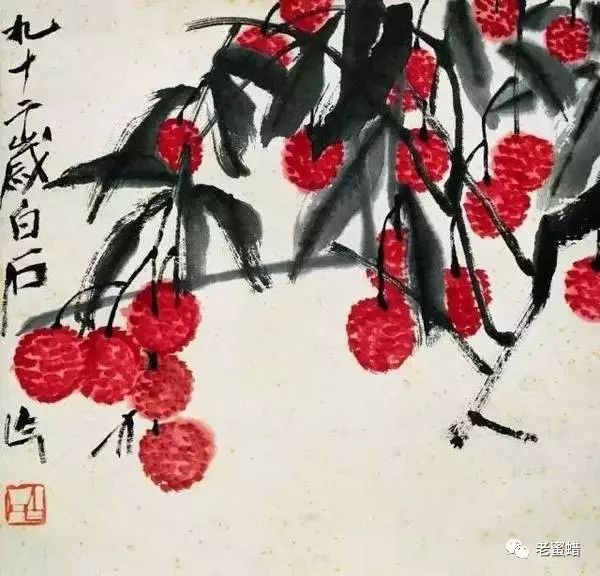 九十二歲白石
老蜜蜡